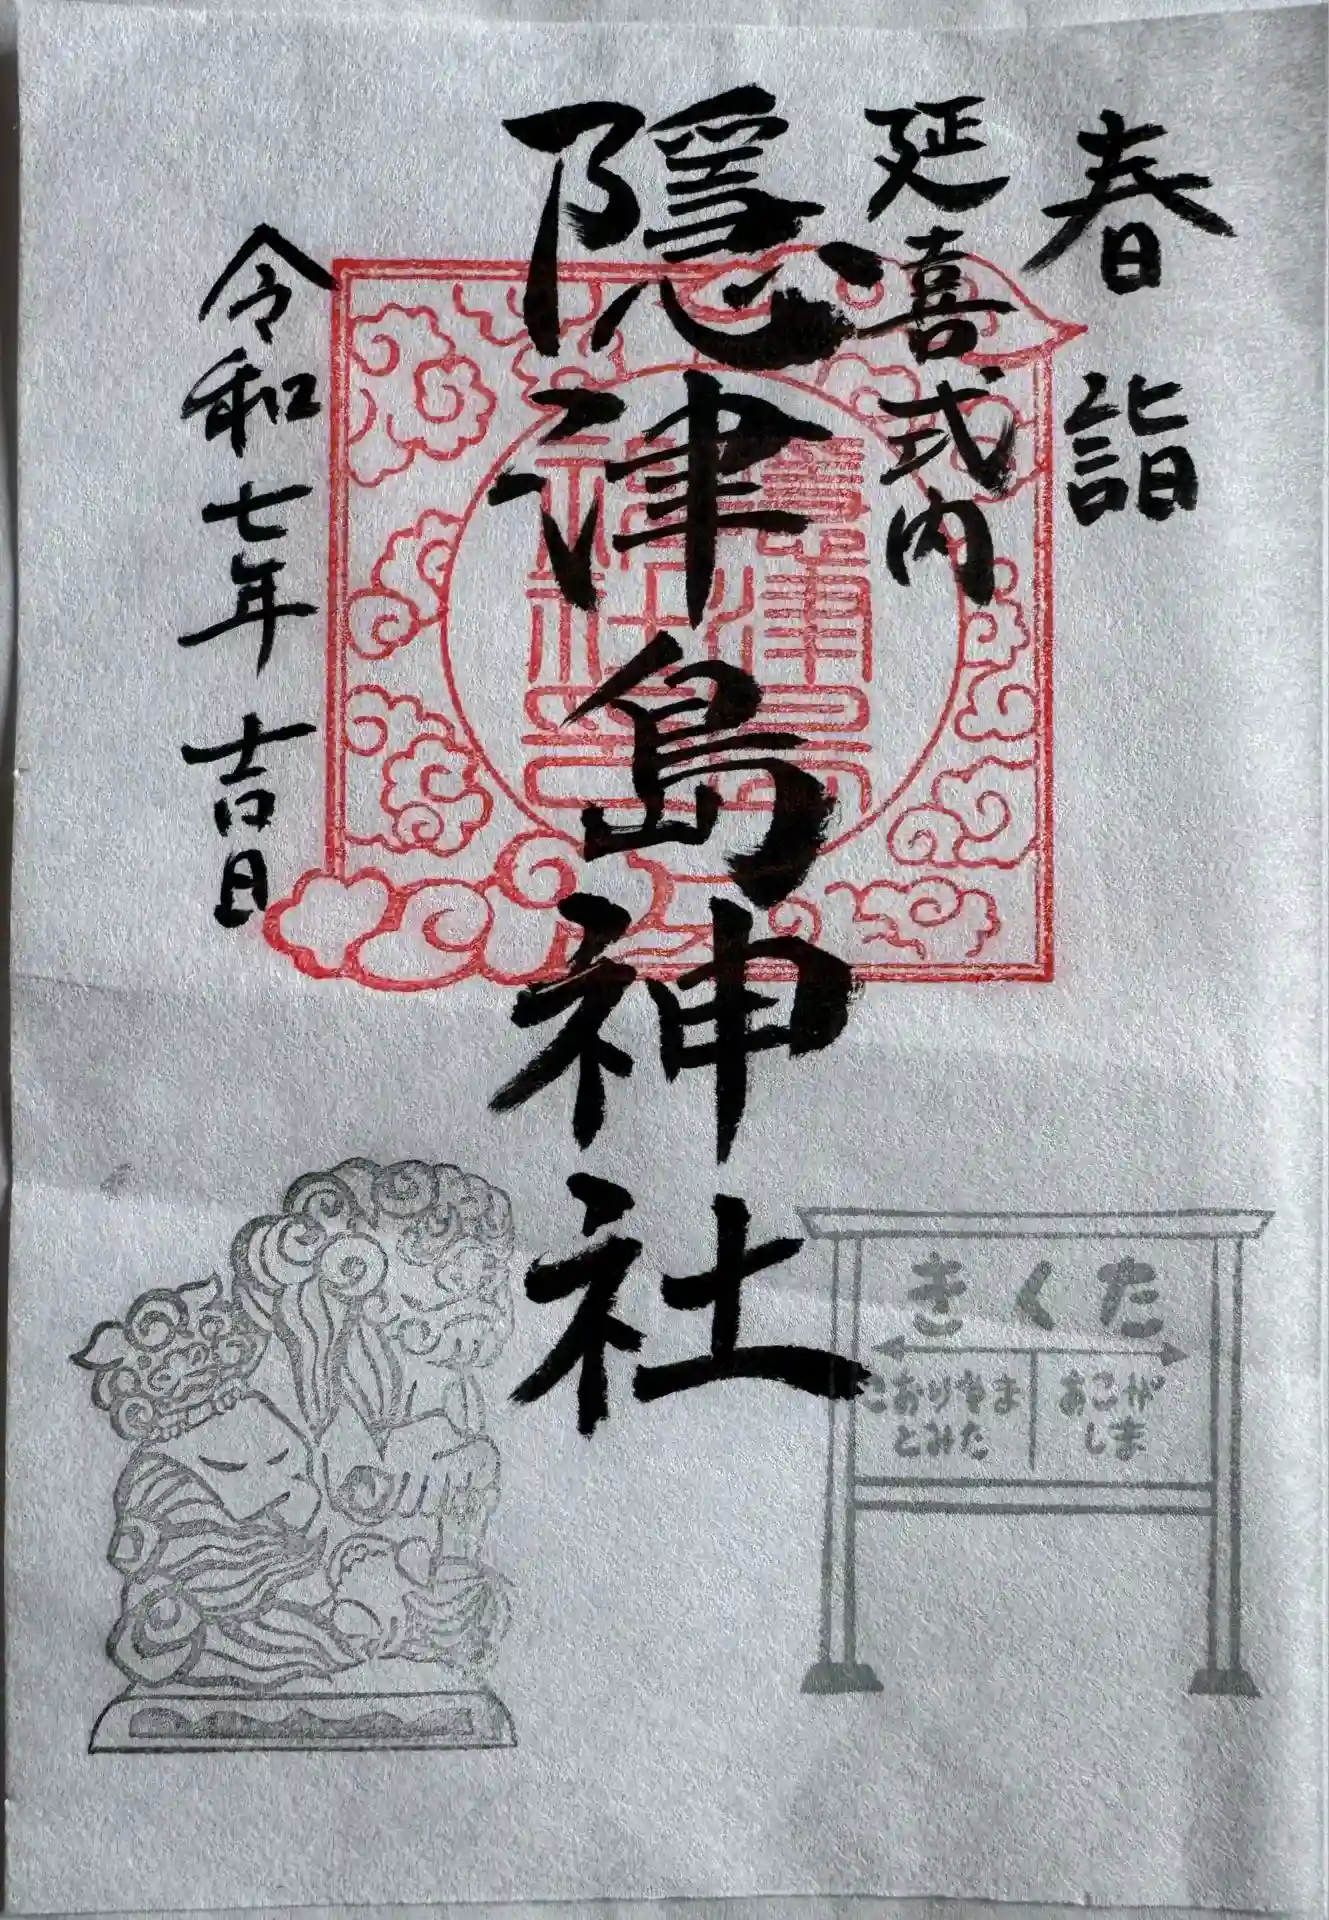 春詣
延喜式内
隠津島神社
令和七年 吉日
隠津島
神社
きくた
こおりやま
とみた
あこが
しま